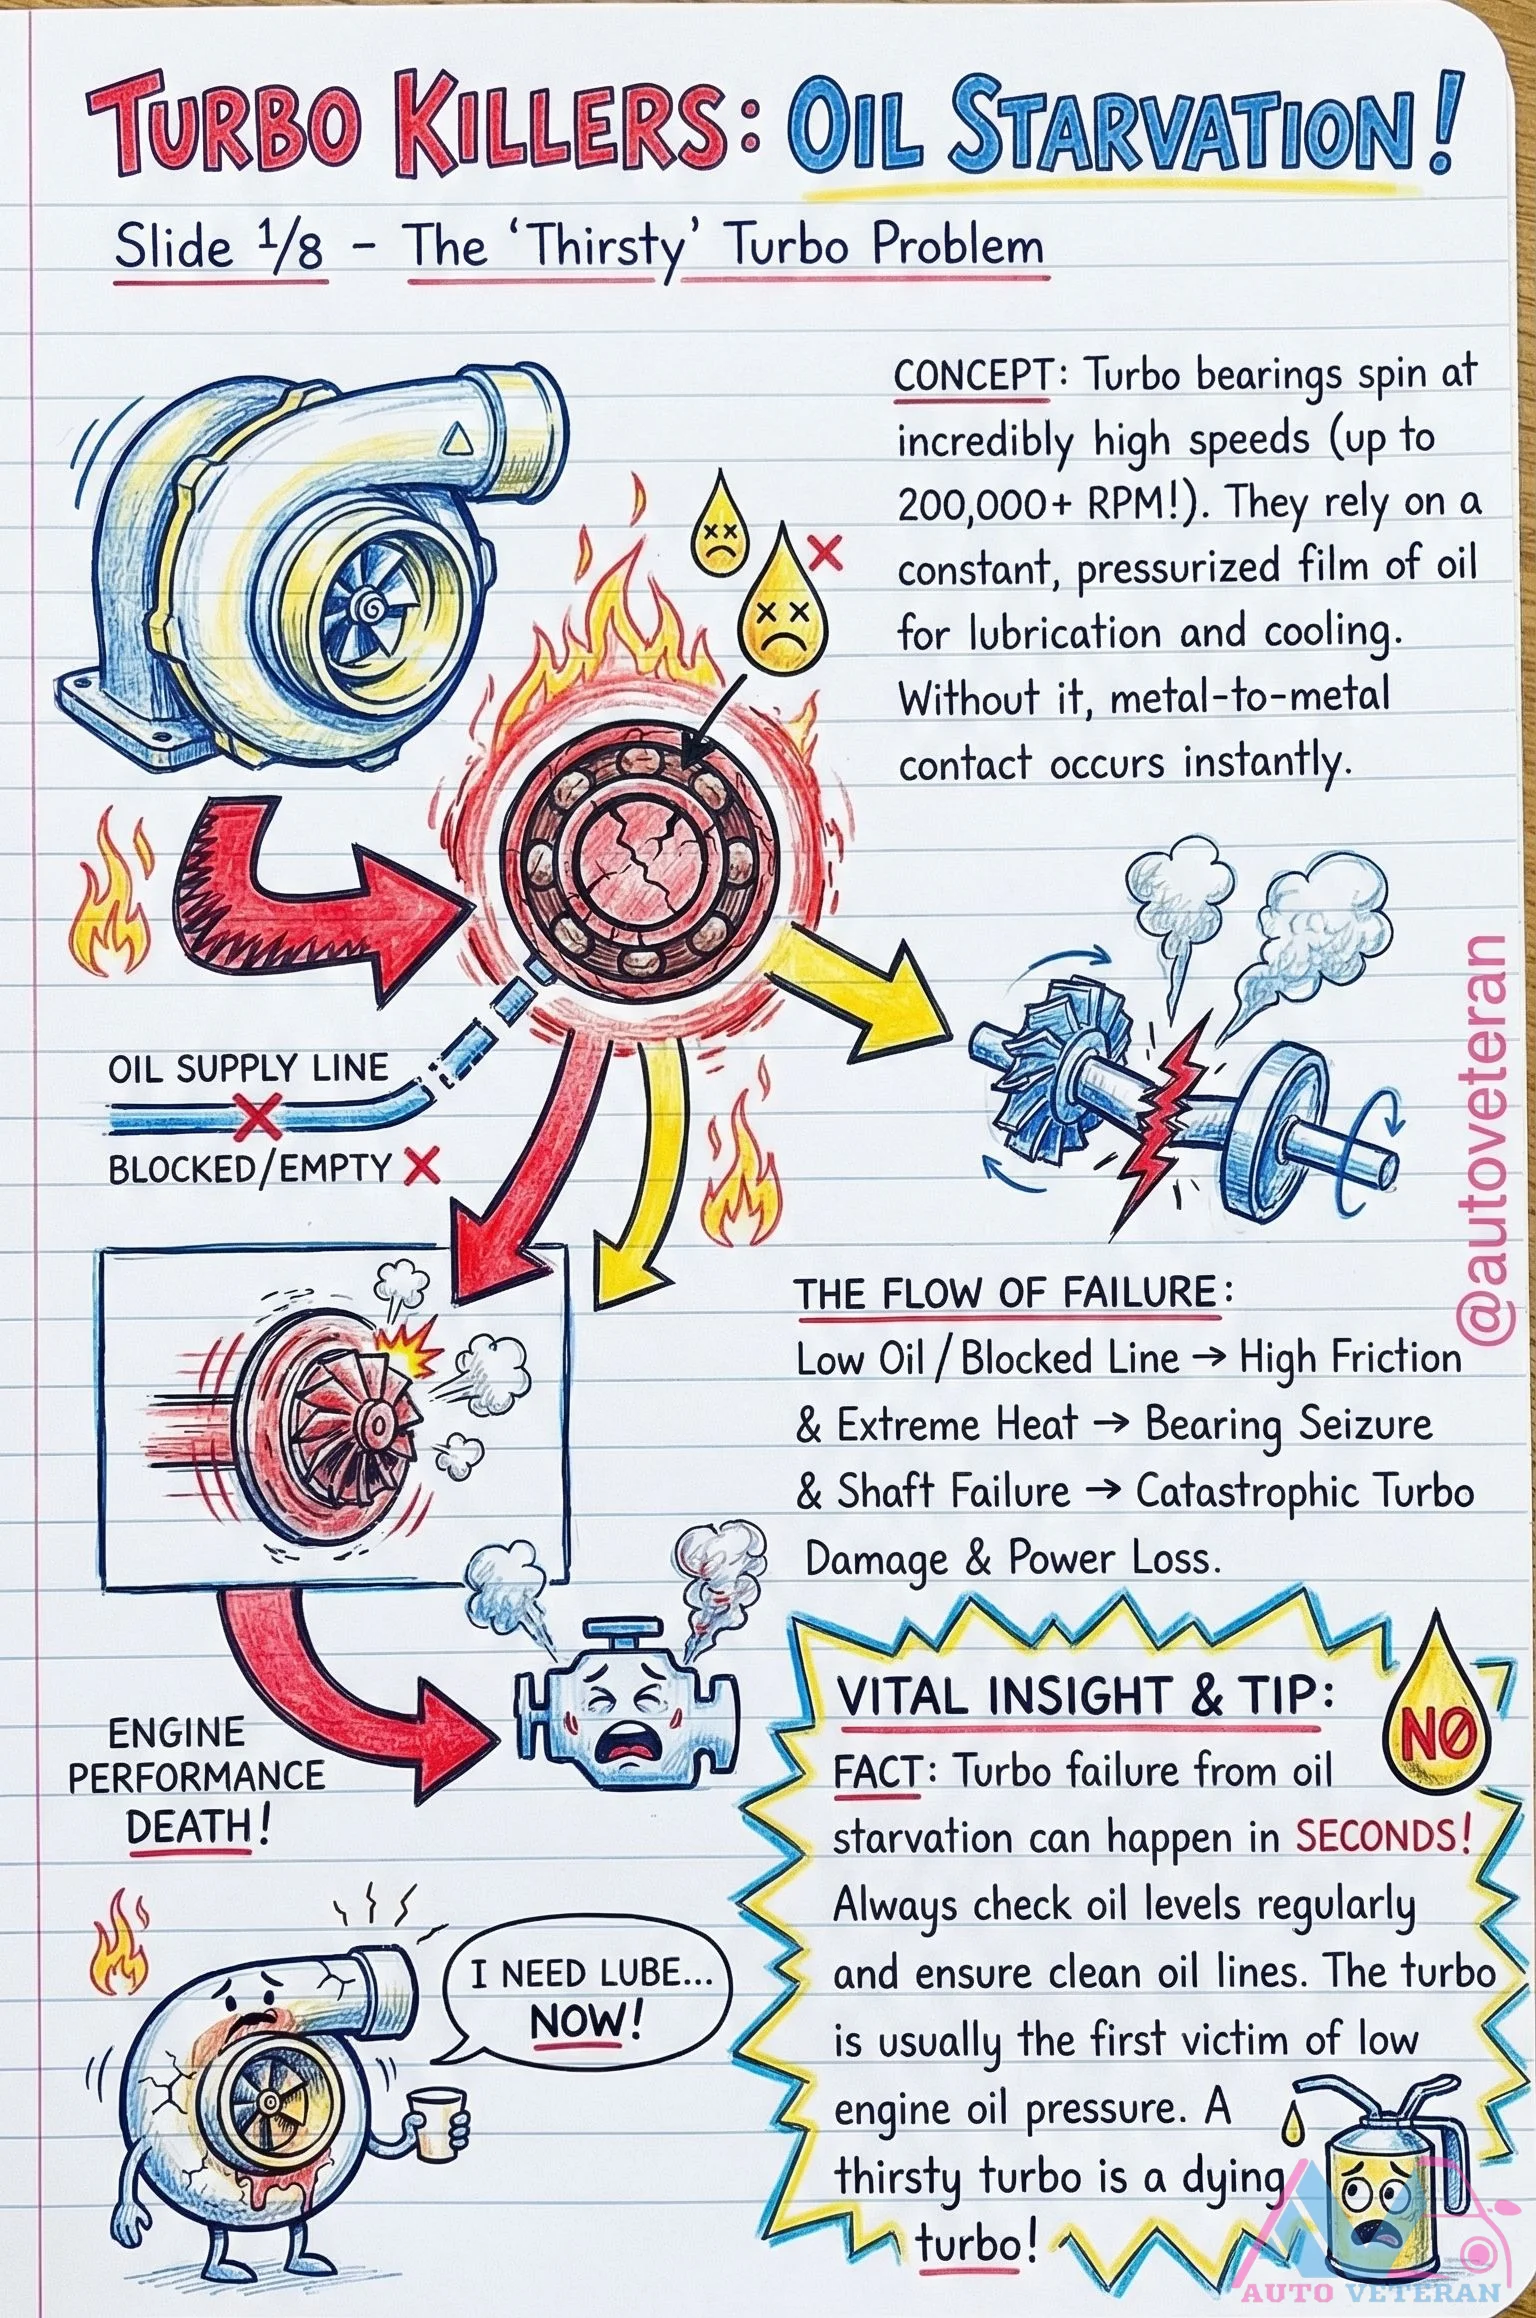 TURBO KILLERS: OIL STARVATION!
Slide 1/8 - The ‘Thirsty’ Turbo Problem
CONCEPT: Turbo bearings spin at
incredibly high speeds (up to
200,000+ RPM!). They rely on a
constant, pressurized film of oil
for lubrication and cooling.
Without it, metal-to-metal
contact occurs instantly.
OIL SUPPLY LINE
BLOCKED/EMPTY X
@autoveteran
THE FLOW OF FAILURE:
Low Oil / Blocked Line → High Friction
& Extreme Heat → Bearing Seizure
& Shaft Failure → Catastrophic Turbo
Damage & Power Loss.
ENGINE
PERFORMANCE
DEATH!
VITAL INSIGHT & TIP:
NO
FACT: Turbo failure from oil
starvation can happen in SECONDS!
Always check oil levels regularly
and ensure clean oil lines. The turbo
is usually the first victim of low
engine oil pressure. A
thirsty turbo is a dying
turbo!
I NEED LUBE...
NOW!
AUTO VETERAN